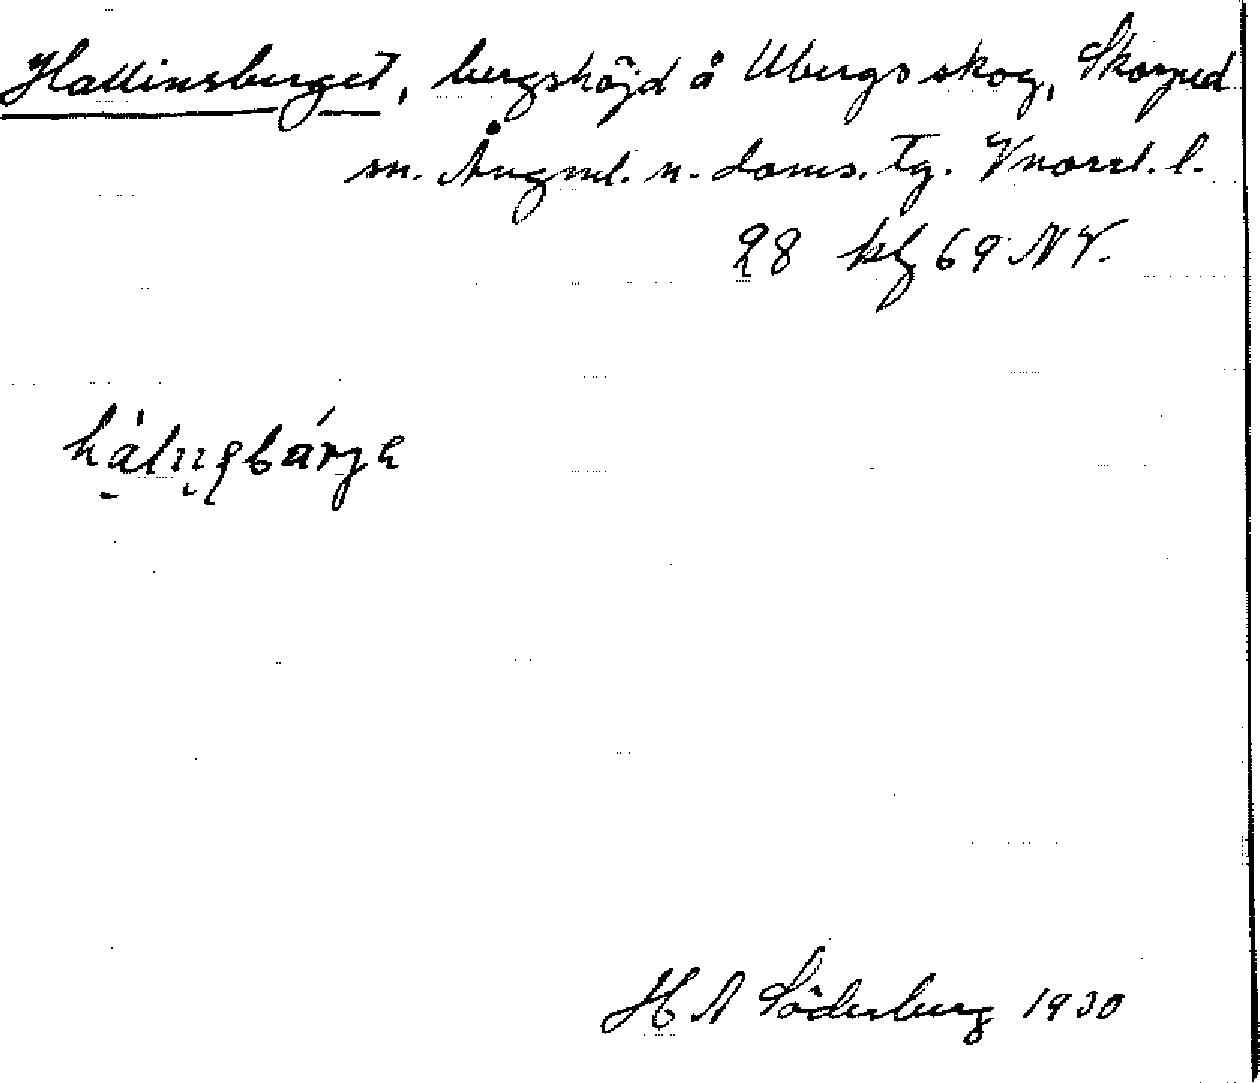 Hallinsberget, bergshöjd å Ubergs skog, Skorped
sn. Ångml. n. doms. tg. Vnorrl. l.
28 kbl 69 NV.
H A Söderberg 1930